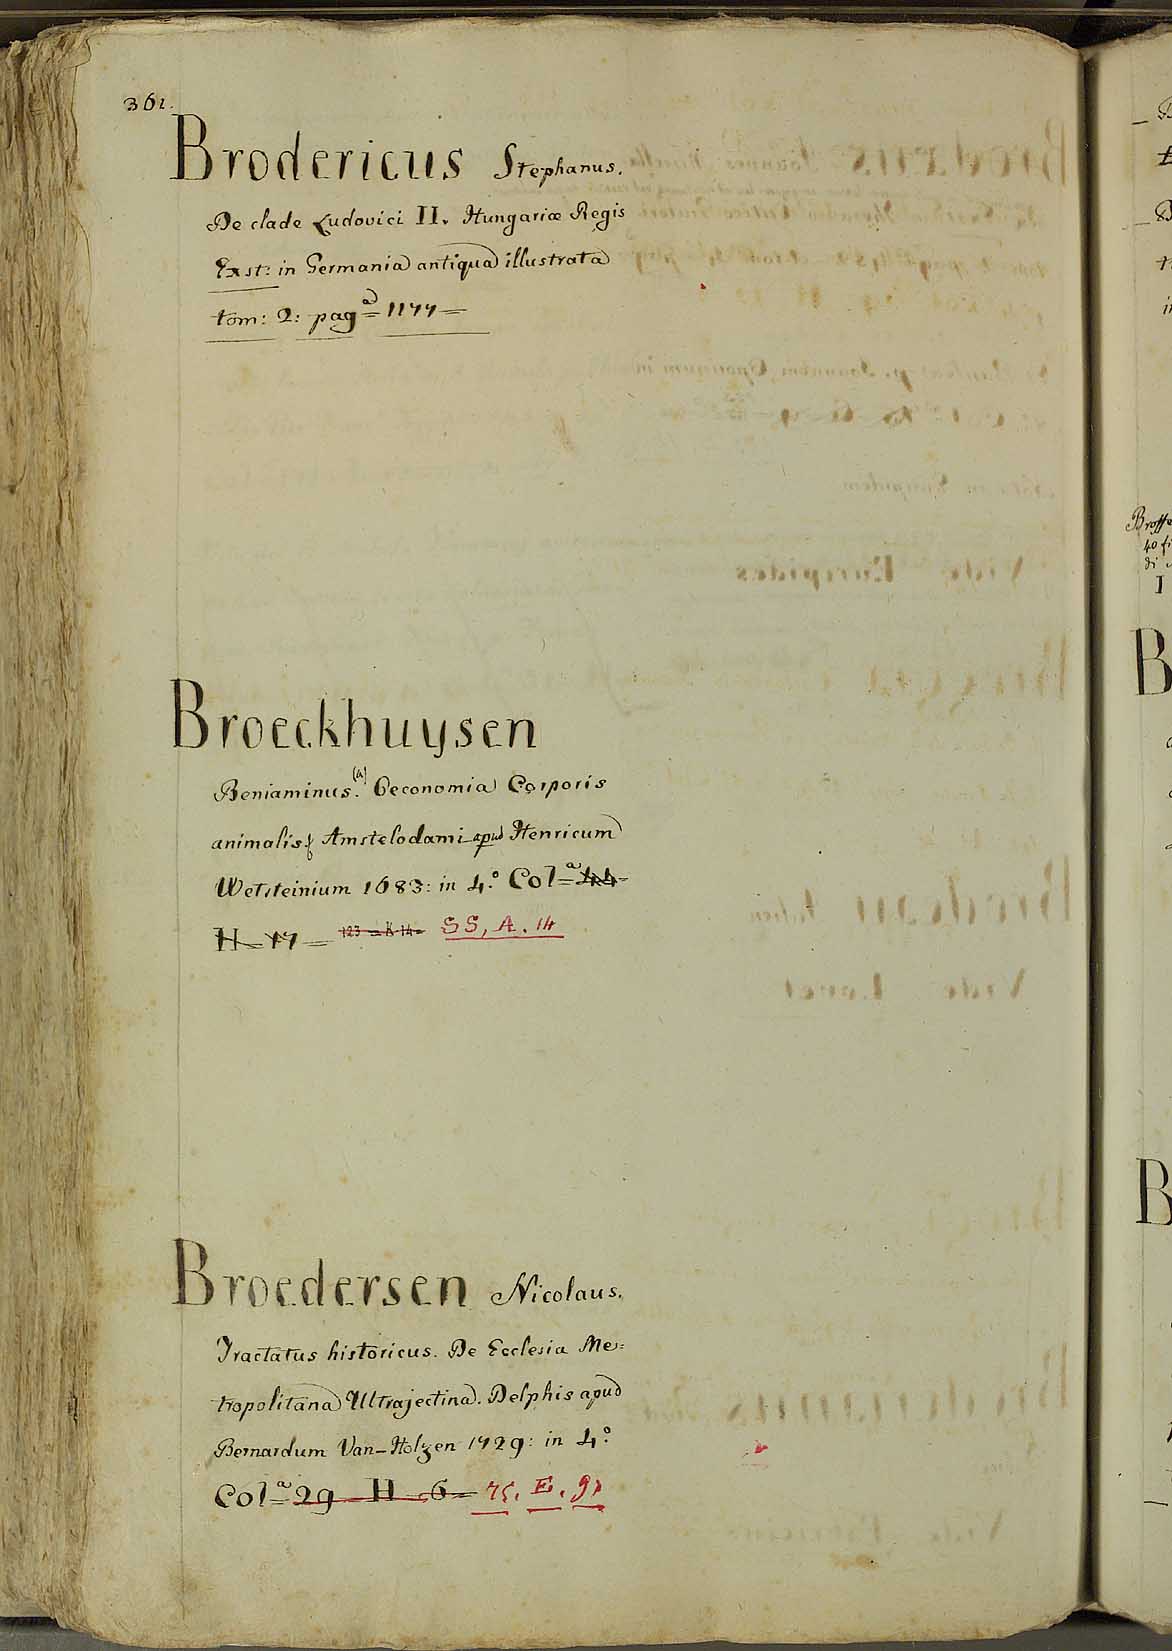 361.
Brodericus Stephanus.
De clade Ludovici II. Hungariæ Regis
Exst: in Germania antiqua illustrata
tom: 2: pag.a= 1177=
Broeckhuysen
Beniaminus.(a) Oeconomia Corporis
animalis. Amstelodami apud Henricum
Wetsteinium 1683: in 4.o Col.a= 44=
H=17= 123=A.14= SS, A. 14
Broedersen Nicolaus.
Tractatus historicus. De Ecclesia Me=
tropolitana Ultrajectina. Delphis apud
Bernardum Van-Holzen 1729: in 4.o
Col.a= 29 H 6= 75. E. 9